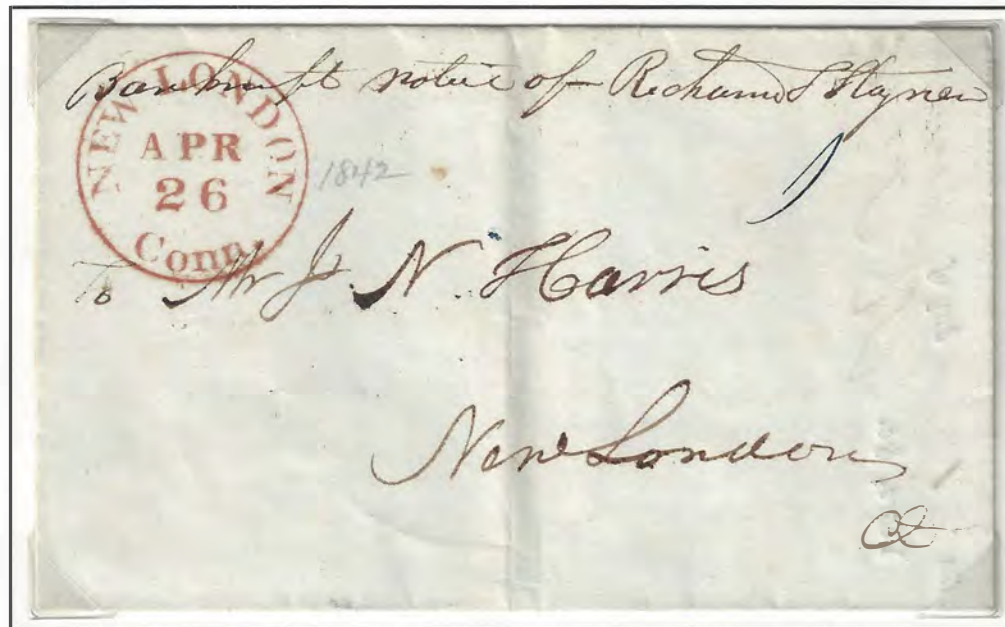 Bankrupt notice of Richard S Haynes
NEW LONDON
APR
26
Conn.
1842
To Mr J. N. Harris
New London
Ct